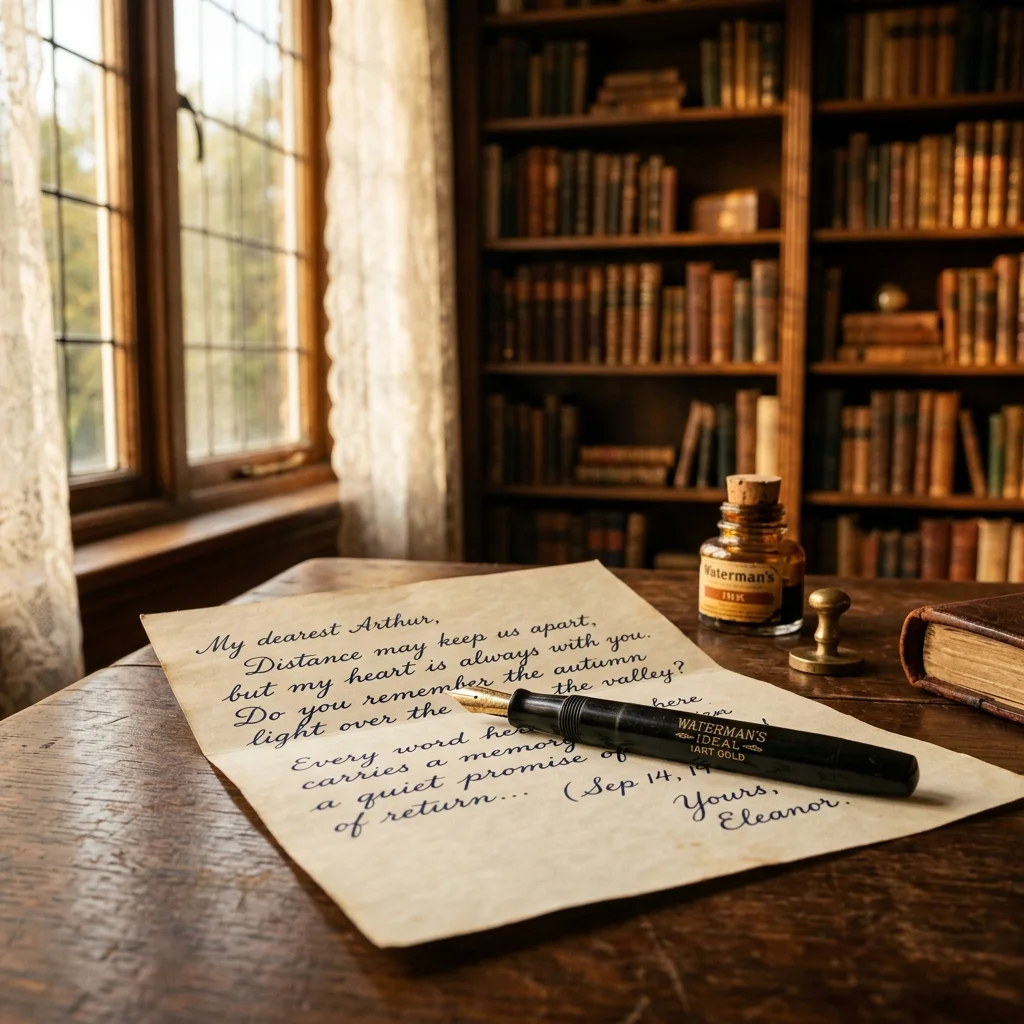 My dearest Arthur,
Distance may keep us apart,
but my heart is always with you.
Do you remember the autumn
light over the the valley?
Every word here
carries a memory
a quiet promise of
of return... (Sep 14, 19
Yours,
Eleanor.
Waterman's
INK
WATERMAN'S
IDEAL
IART GOLD